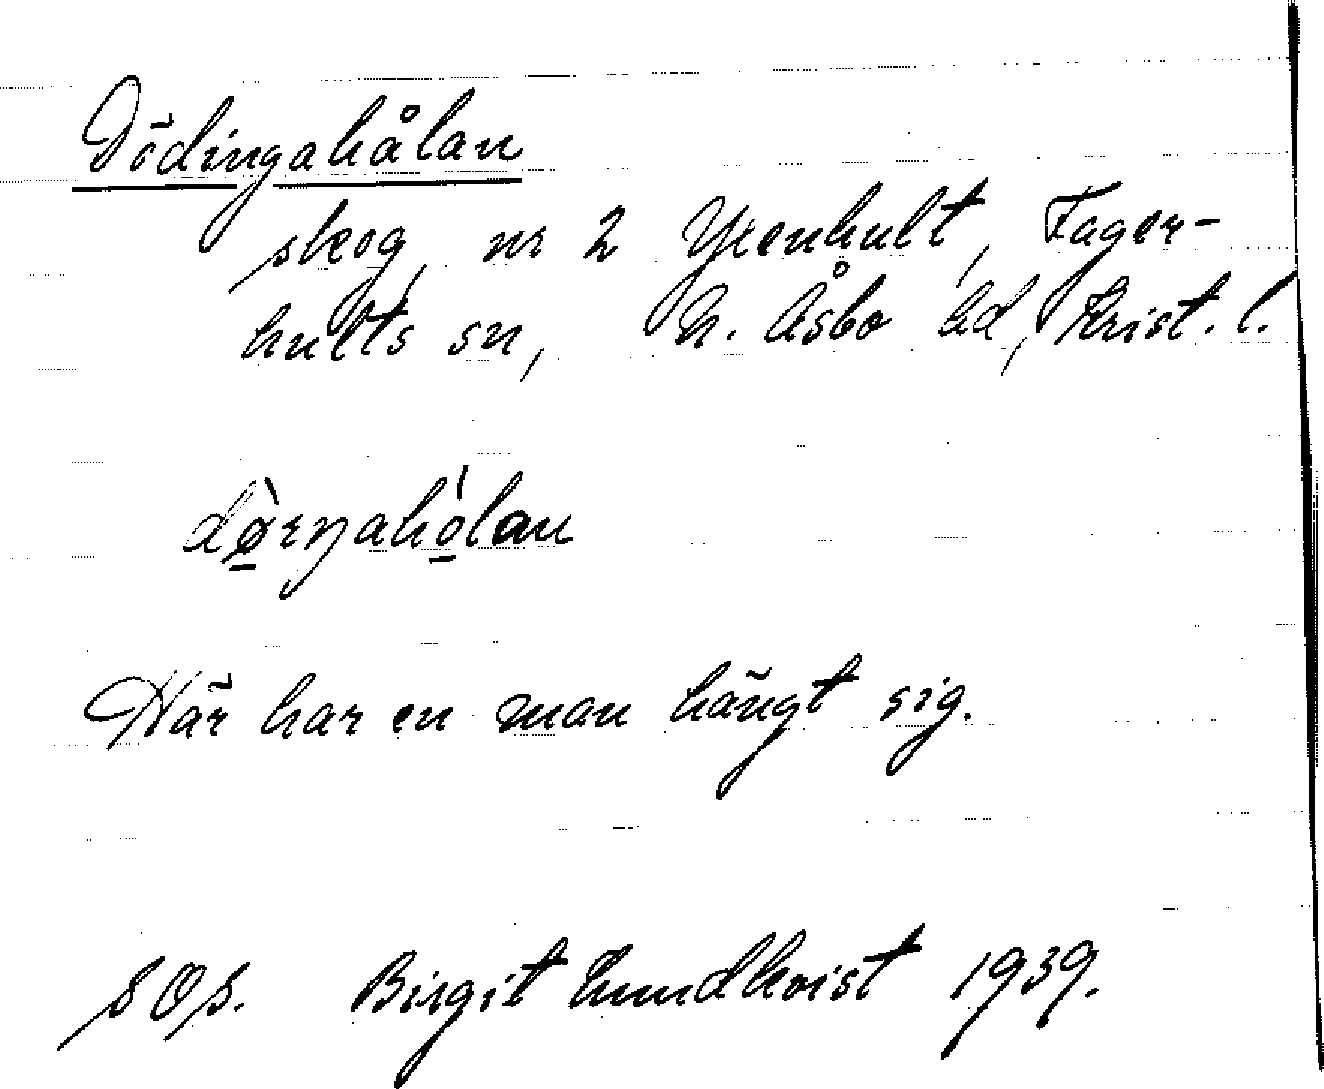 Dödingahålan
skog, nr 2 Yxenhult, Fager-
hults sn, N. Åsbo hd, Krist. l.
dø̀rŋahólan
Här har en man hängt sig.
SOS. Birgit Lundkvist 1939.